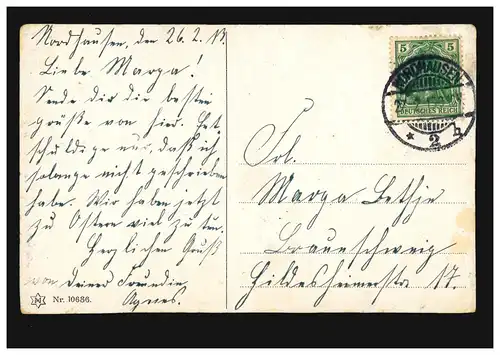 Nordhausen, den 26.2.13.
Liebe Marga!
Sende dir die besten
grüße von hier. Ent
schuldige nur, daß ich
solange nicht geschrieben
habe. Wir haben jetzt
zu Ostern viel zu tun.
Herzlichen Gruß
von deiner Freundin
Agnes.
Nr. 10686.
5 5
DEUTSCHES REICH
NORDHAUSEN
* 2 h
Frl.
Marga Bethje
Braunschweig
Hildesheimerstr 17.